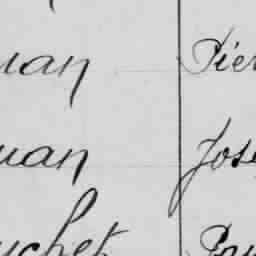 uan Pier
uan Jose
uchet Pau